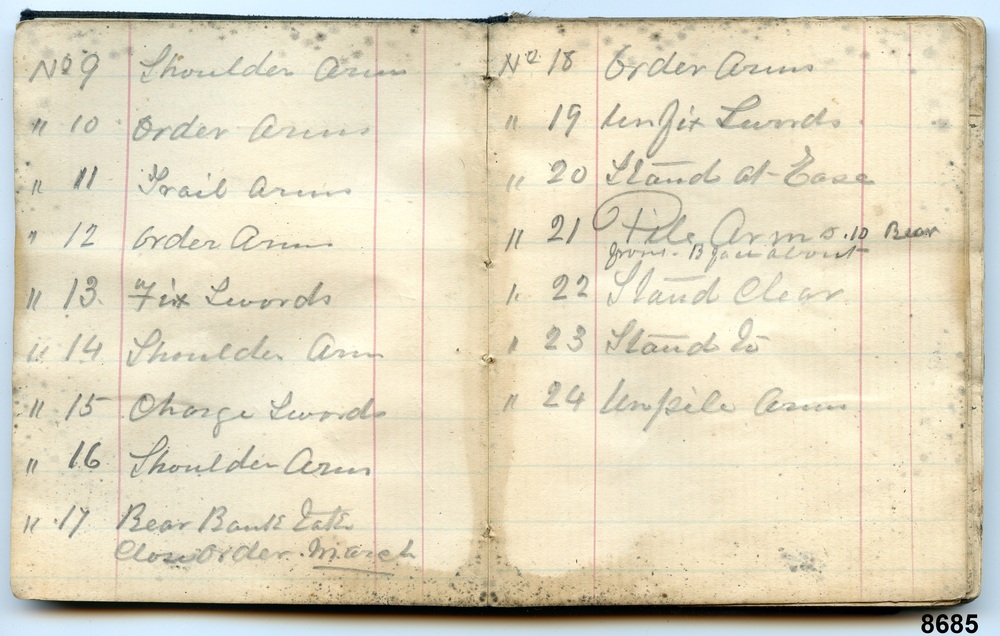 No 9 Shoulder Arms
" 10 Order Arms
" 11 Trail Arms
" 12 order Arms
" 13. Fix Swords
" 14 Shoulder Arm
" 15 Charge Swords
" 16 Shoulder Arm
" 17 Rear Rank Take
Close order. March
No 18 Order Arms
" 19 Unfix Swords
" 20 Stand at Ease
" 21 Pile Arms. 10 Rear
front. 13 face about
" 22 Stand Clear.
" 23 Stand To
" 24 Unpile Arms
8685